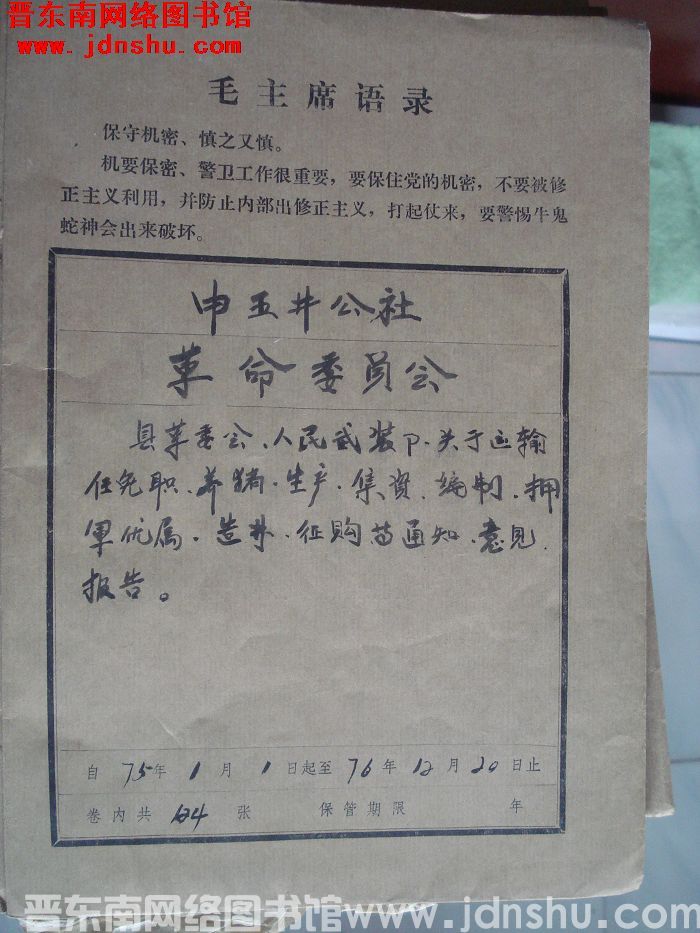 晋东南网络图书馆
www.jdnshu.com
毛主席语录
保守机密、慎之又慎。
机要保密、警卫工作很重要，要保住党的机密，不要被修
正主义利用，并防止内部出修正主义，打起仗来，要警惕牛鬼
蛇神会出来破坏。
申五井公社
革命委员会
县革委会、人民武装卩、关于运输
任免职、养猪、生产、集资、编制、拥
军优属、造林、征购等通知、意见、
报告。
自 75年 1月 1日起至 76年 12月 20日止
卷内共 124 张 保管期限 年
晋东南网络图书馆 www.jdnshu.com